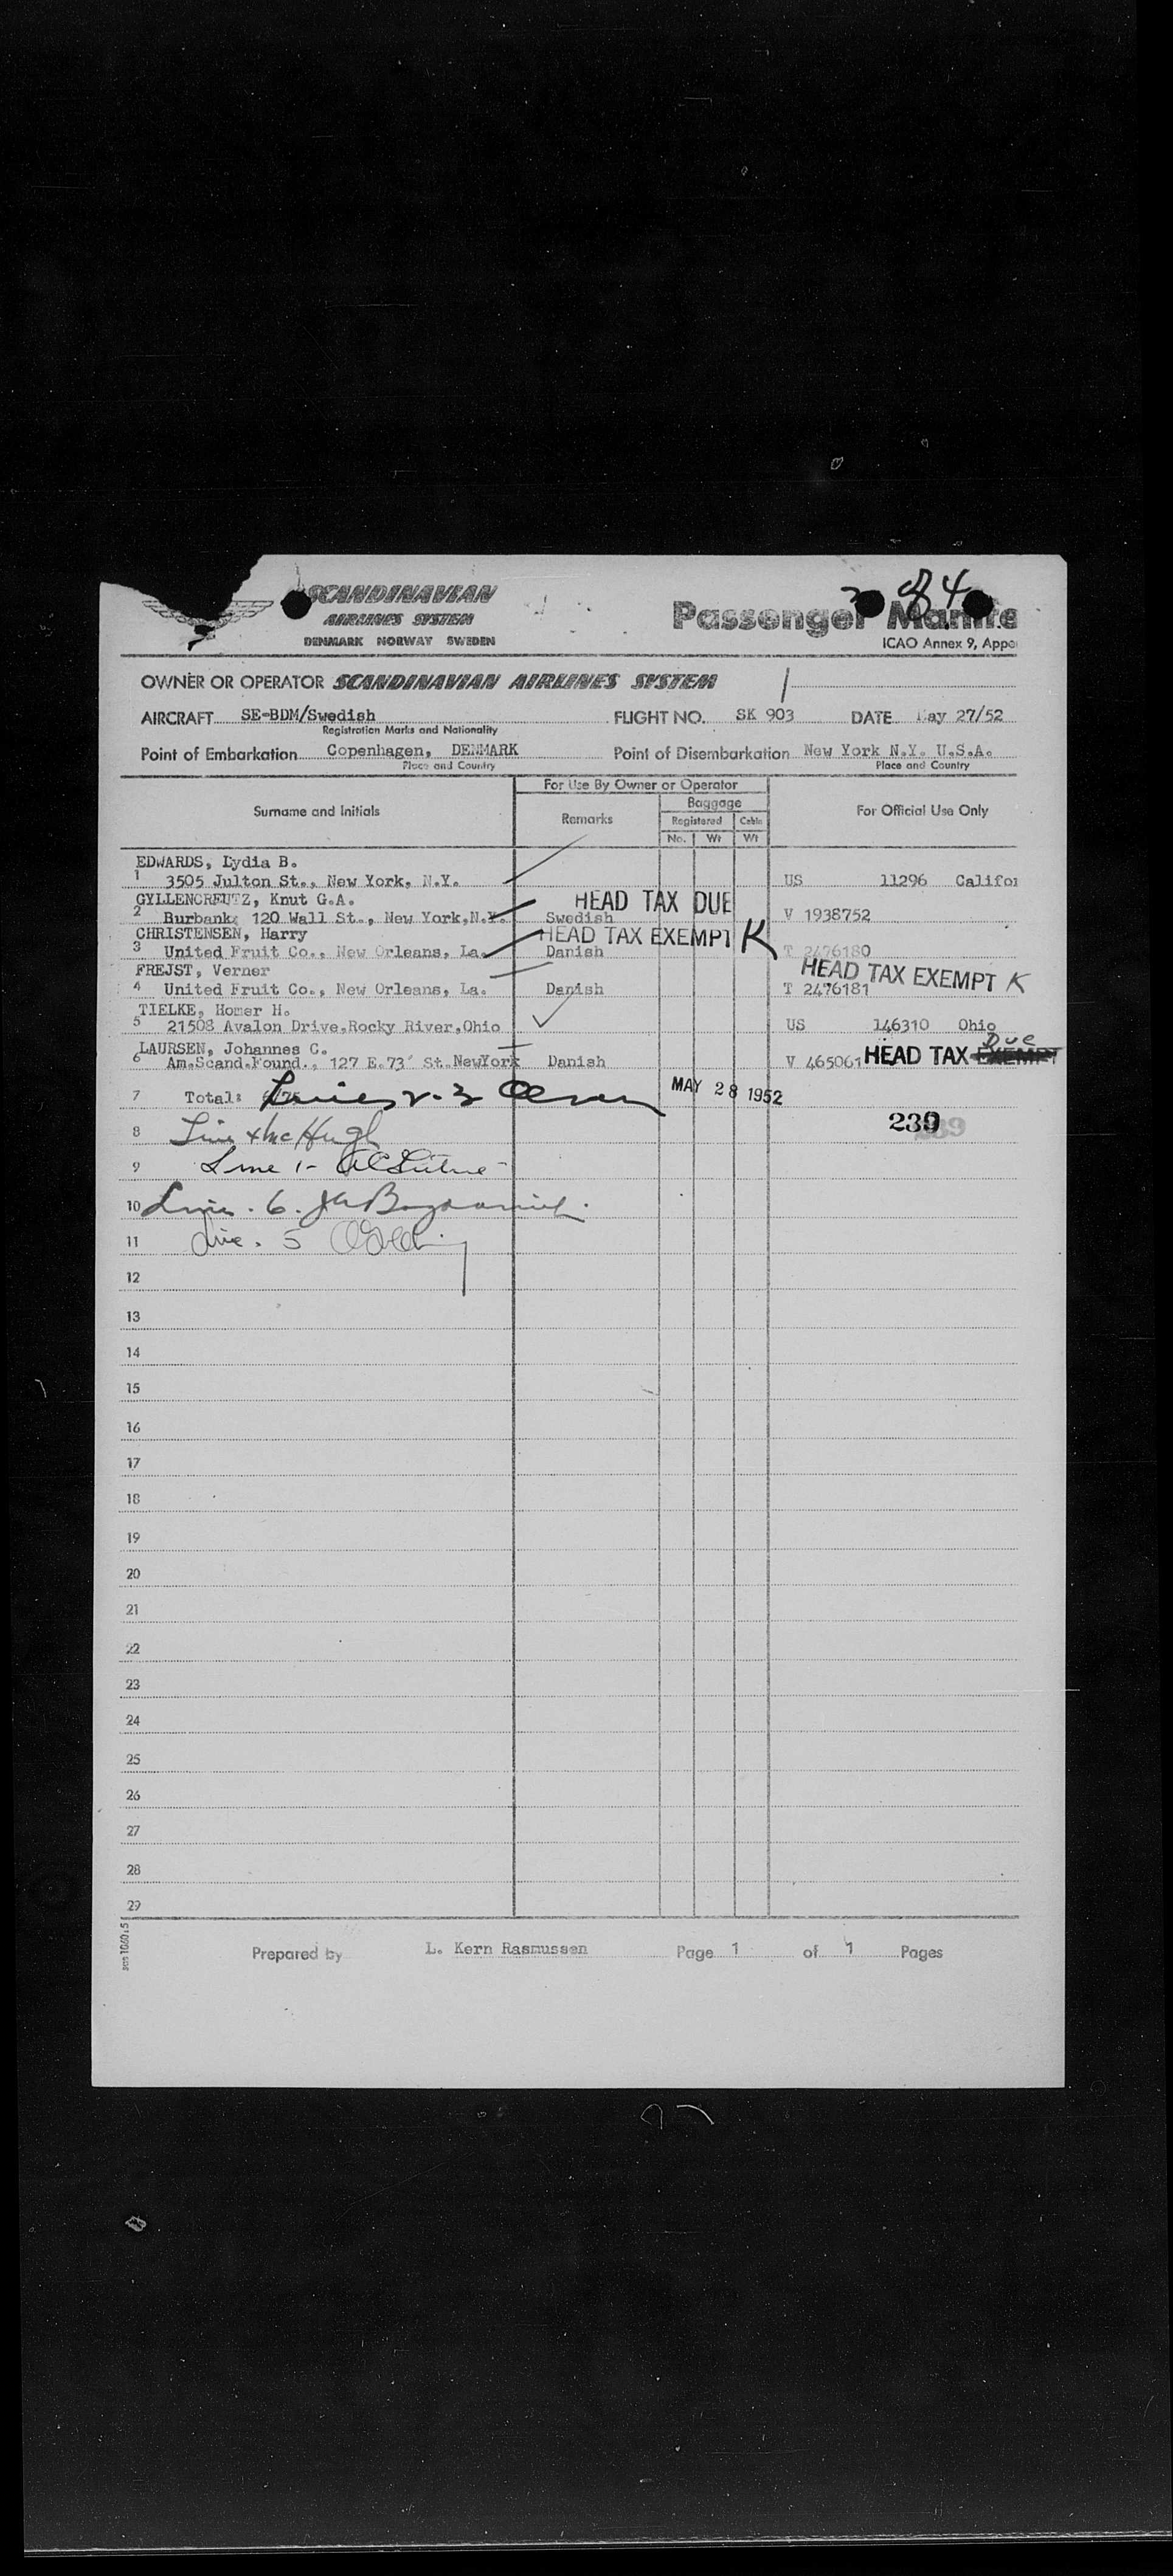 SCANDINAVIAN
AIRLINES SYSTEM
DENMARK NORWAY SWEDEN
84
Passenger Manife
ICAO Annex 9, Appe
OWNER OR OPERATOR SCANDINAVIAN AIRLINES SYSTEM
AIRCRAFT SE-BDM/Swedish FLIGHT NO. SK 903 DATE May 27/52
Registration Marks and Nationality
Point of Embarkation Copenhagen, DENMARK Point of Disembarkation New York N.Y. U.S.A.
Place and Country Place and Country
Surname and Initials For Use By Owner or Operator For Official Use Only
Remarks Baggage
Registered Cabin
No. Wt Wt
EDWARDS, Lydia B.
1 3505 Julton St., New York, N.Y. US 11296 Califor
GYLLENCREUTZ, Knut G.A. HEAD TAX DUE
2 Burbank, 120 Wall St., New York,N.Y. Swedish V 1938752
CHRISTENSEN, Harry HEAD TAX EXEMPT K
3 United Fruit Co., New Orleans, La. Danish T 2476180
FREJST, Verner HEAD TAX EXEMPT K
4 United Fruit Co., New Orleans, La. Danish T 2476181
TIELKE, Homer H.
5 21508 Avalon Drive,Rocky River,Ohio US 146310 Ohio
LAURSEN, Johannes C. Due
6 Am.Scand.Found., 127 E.73' St.NewYork Danish V 465061 HEAD TAX EXEMPT
7 Total: MAY 28 1952
8 Line 4 McHugh 239
9 Line 1-
10 Line. 6.
11 Line. 5
12
13
14
15
16
17
18
19
20
21
22
23
24
25
26
27
28
29
Prepared by L. Kern Rasmussen Page 1 of 1 Pages